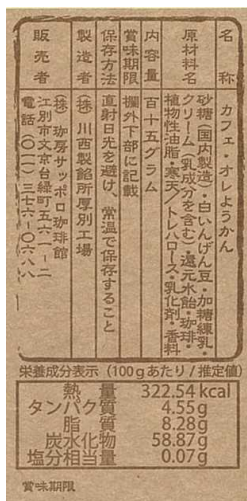 名称 カフェ・オレようかん
原材料名 砂糖(国内製造)・白いんげん豆・加糖練乳・
クリーム(乳成分を含む)・還元水飴・珈琲・
植物性油脂・寒天/トレハロース・乳化剤・香料
内容量 百十五グラム
賞味期限 欄外下部に記載
保存方法 直射日光を避け、常温で保存すること
製造者 (株)川西製餡所厚別工場
販売者 (株)珈房サッポロ珈琲館
江別市文京台緑町五六一-二
電話(〇一一)三七六-〇六八八
栄養成分表示(100gあたり/推定値)
熱量 322.54kcal
タンパク質 4.55g
脂質 8.28g
炭水化物 58.87g
塩分相当量 0.07g
賞味期限